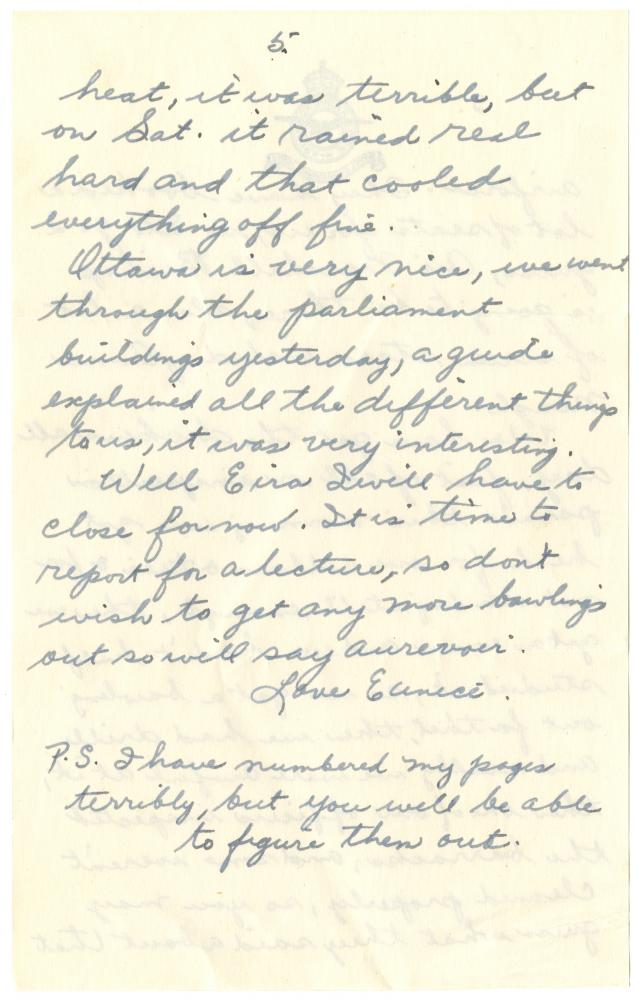 5.
heat, it was terrible, but
on Sat. it rained real
hard and that cooled
everything off fine.
Ottawa is very nice, we went
through the parliament
buildings yesterday, a guide
explained all the different things
to us, it was very interesting.
Well Eira I will have to
close for now. It is time to
report for a lecture, so don't
wish to get any more bawlings
out so will say aurevoir.
Love Eunice.
P.S. I have numbered my pages
terribly, but you will be able
to figure them out.